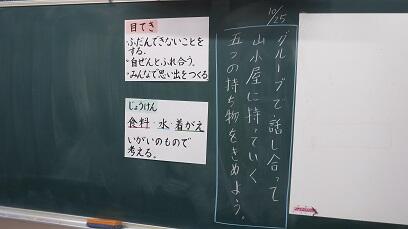 10/25
グループで話し合って
山小屋に持っていく
五つの持ち物をきめよう。
目てき
・ふだんできないことを
する。
・自ぜんとふれ合う。
・みんなで思い出をつくる
じょうけん
食料・水・着がえ
いがいのもので
考える。